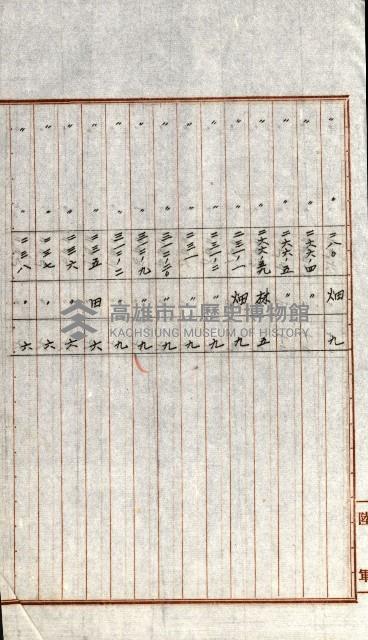 〃 〃 二八〇 畑 九
〃 〃 二六六ノ四 〃
〃 〃 二六六ノ五 〃
〃 〃 二六六ノ五九 林 五
〃 〃 二三一ノ一 畑 九
〃 〃 二三一ノ二 〃 九
〃 〃 二三一 〃 九
〃 〃 三一二ノ二〇 〃 九
〃 〃 三一二ノ九 〃 九
〃 〃 三一二ノ二 〃 九
〃 〃 二三五 田 六
〃 〃 二三六 〃 六
〃 〃 二三七 〃 六
〃 〃 二三八 〃 六
陸軍
高雄市立歷史博物館
KAOHSIUNG MUSEUM OF HISTORY